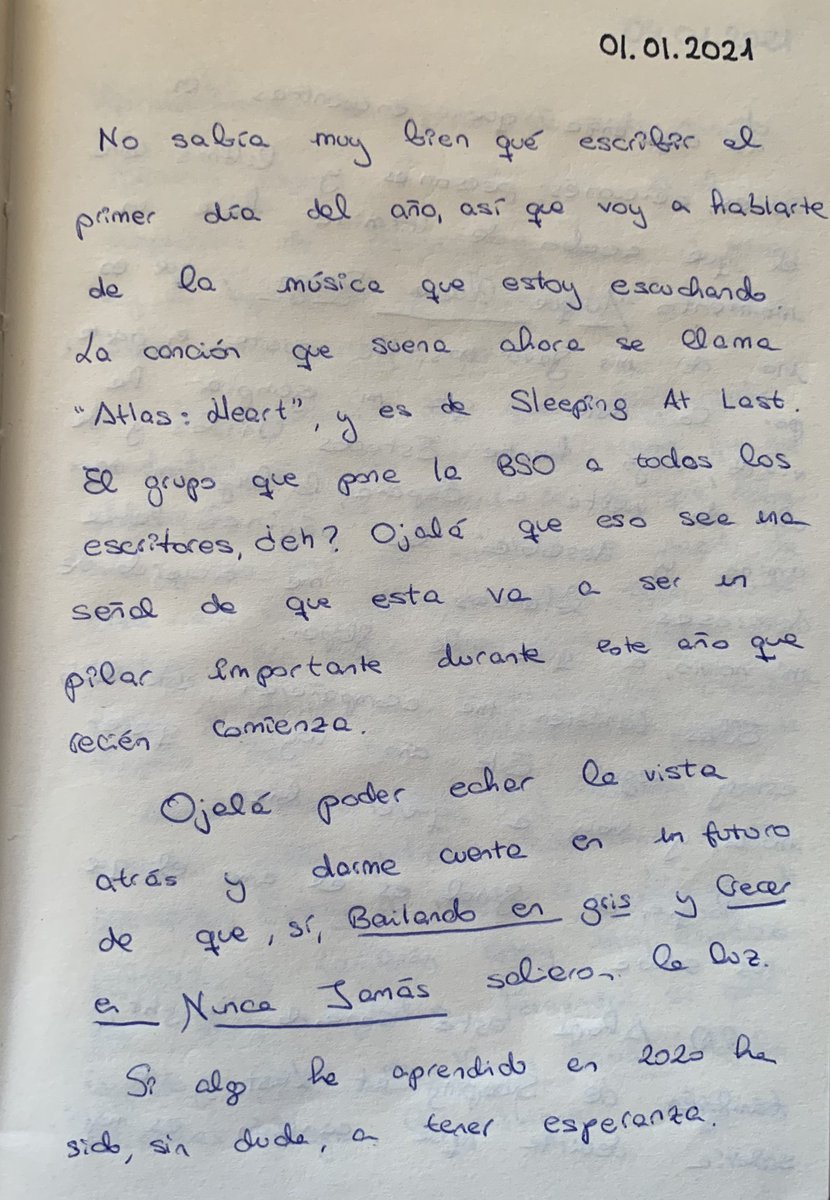 01.01.2021
No sabía muy bien qué escribir el
primer día del año, así que voy a hablarte
de la música que estoy escuchando.
La canción que suena ahora se llama
"Atlas: Heart", y es de Sleeping At Last.
El grupo que pone la BSO a todos los
escritores, ¿eh? Ojalá que eso sea una
señal de que esta va a ser un
pilar importante durante este año que
recién comienza.
Ojalá poder echar la vista
atrás y darme cuenta en un futuro
de que, sí, Bailando en gris y Crecer
en Nunca Jamás salieron la luz.
Si algo he aprendido en 2020 ha
sido, sin duda, a tener esperanza.